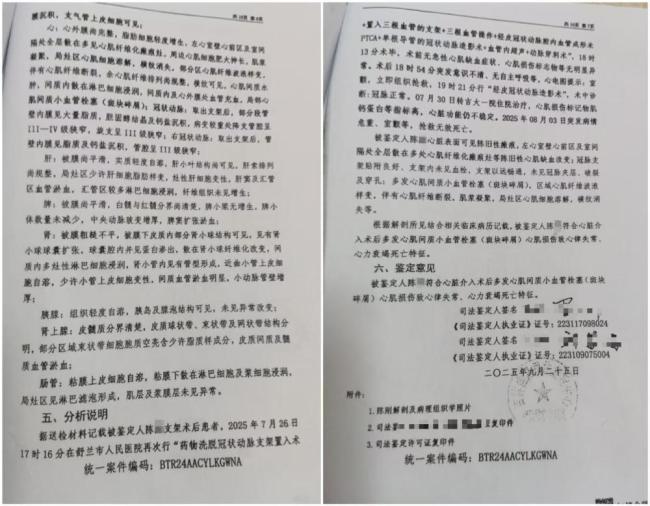 共10页 第6页
膜沉积,支气管上皮细胞可见;
心:心外膜尚完整,脂肪细胞轻度增生,左心室壁心前区及室间
隔处全层散在多见心肌纤维化瘢痕灶,周边心肌细胞肥大伸长,肌浆
凝聚,局灶区心肌细胞溶解、横纹消失,部分区心肌纤维波浪样变,
伴有心肌纤维断裂,余心肌纤维排列尚规整,横纹可见,心肌间质水
肿,间质内散在淋巴细胞浸润,间质内及心外膜处血管充血,局部心
肌间质小血管栓塞(斑块碎屑);冠状动脉:取出支架后,部分段管
壁内膜见大量脂质,胆固醇结晶及钙盐沉积,病变较重处降支管腔呈
III—IV级狭窄,旋支呈III级狭窄;右冠状动脉:取出支架后,管
壁内膜见脂质及钙盐沉积,管腔呈III级狭窄;
肝:被膜尚平滑,实质轻度自溶,肝小叶结构尚可见,肝索排列
尚规整,局灶区少许肝细胞脂肪样变,灶性肝细胞变性,肝窦及汇管
区血管淤血,汇管区较多淋巴细胞浸润,纤维组织未见增生;
脾:被膜尚平滑,白髓与红髓分界尚清楚,脾小梁无增生,脾小
体数量未减少,中央动脉玻变增厚,脾窦扩张淤血;
肾:被膜粗糙不平,被膜下皮质内部分肾小球结构可见,见有肾
小球球囊扩张,球囊腔内并见蛋白渗出,散在肾小球纤维化改变,间
质内多灶性淋巴细胞浸润,肾小管内见有管型形成,近曲小管上皮细
胞自溶,少许小管上皮细胞变性,间质血管淤血明显,小动脉管壁增
厚;
胰腺:组织轻度自溶,胰岛及腺泡结构可见,未见异常改变;
肾上腺:皮髓质分界清楚,皮质球状带、束状带及网状带结构分
明,部分区域束状带细胞胞质空亮含少许脂质样成分,皮质间质及髓
质血管淤血;
肠管:粘膜上皮细胞自溶,粘膜下散在淋巴细胞及浆细胞浸润,
局灶区见淋巴滤泡形成,肌层及浆膜层未见异常。
五、分析说明
据送检材料记载被鉴定人陈 支架术后患者。2025年7月26日
17时16分在舒兰市人民医院再次行“药物洗脱冠状动脉支架置入术
统一案件编码:BTR24AACYLKGWNA
共10页 第7页
+置入三根血管的支架+三根血管操作+经皮冠状动脉腔内血管成形术
PTCA+单根导管的冠状动脉造影术+血管内超声+动脉穿刺术”,18时
13分术毕,术前无急性心肌缺血症状、心肌损伤标志物等无明显异
常。术后18时54分突发意识不清、无自主呼吸等,心电图提示:室
颤,立即组织抢救,19时21分行“经皮冠状动脉造影术”,术中诊
断:冠脉正常。07月30日转吉大一院住院治疗,心肌损伤标记物肌
钙蛋白等指标高,心脏功能仍不稳定。2025年08月03日突发病情
危重、室颤等,抢救无效死亡。
被鉴定人陈 心脏表面可见陈旧性瘢痕,左心室壁心前区及室间
隔处全层散在多处心肌纤维化瘢痕灶等陈旧性心肌缺血改变;冠脉支
架贴附良好、支架内未见血栓,支架以远畅通,未见冠脉夹层、破裂
及穿孔;多发心肌间质小血管栓塞(斑块碎屑),区域心肌纤维波浪
样变,伴有心肌纤维断裂,肌浆凝聚,局灶区心肌细胞溶解,横纹消
失等。
根据解剖所见结合相关临床病历记载,被鉴定人陈 符合心脏介
入术后多发心肌间质小血管栓塞(斑块碎屑)心肌损伤致心律失常、
心力衰竭死亡特征。
六、鉴定意见
被鉴定人陈 符合心脏介入术后多发心肌间质小血管栓塞(斑
块碎屑)心肌损伤致心律失常、心力衰竭死亡特征。
司法鉴定人签名
《司法鉴定人执业证》证号:223117098024
司法鉴定人签名
《司法鉴定人执业证》证号:223109075004
二〇二五年九月二十五日
附件:
1.陈刚解剖及病理组织学照片
2.司法 复印件
3.司法鉴定许可证复印件
统一案件编码:BTR24AACYLKGWNA